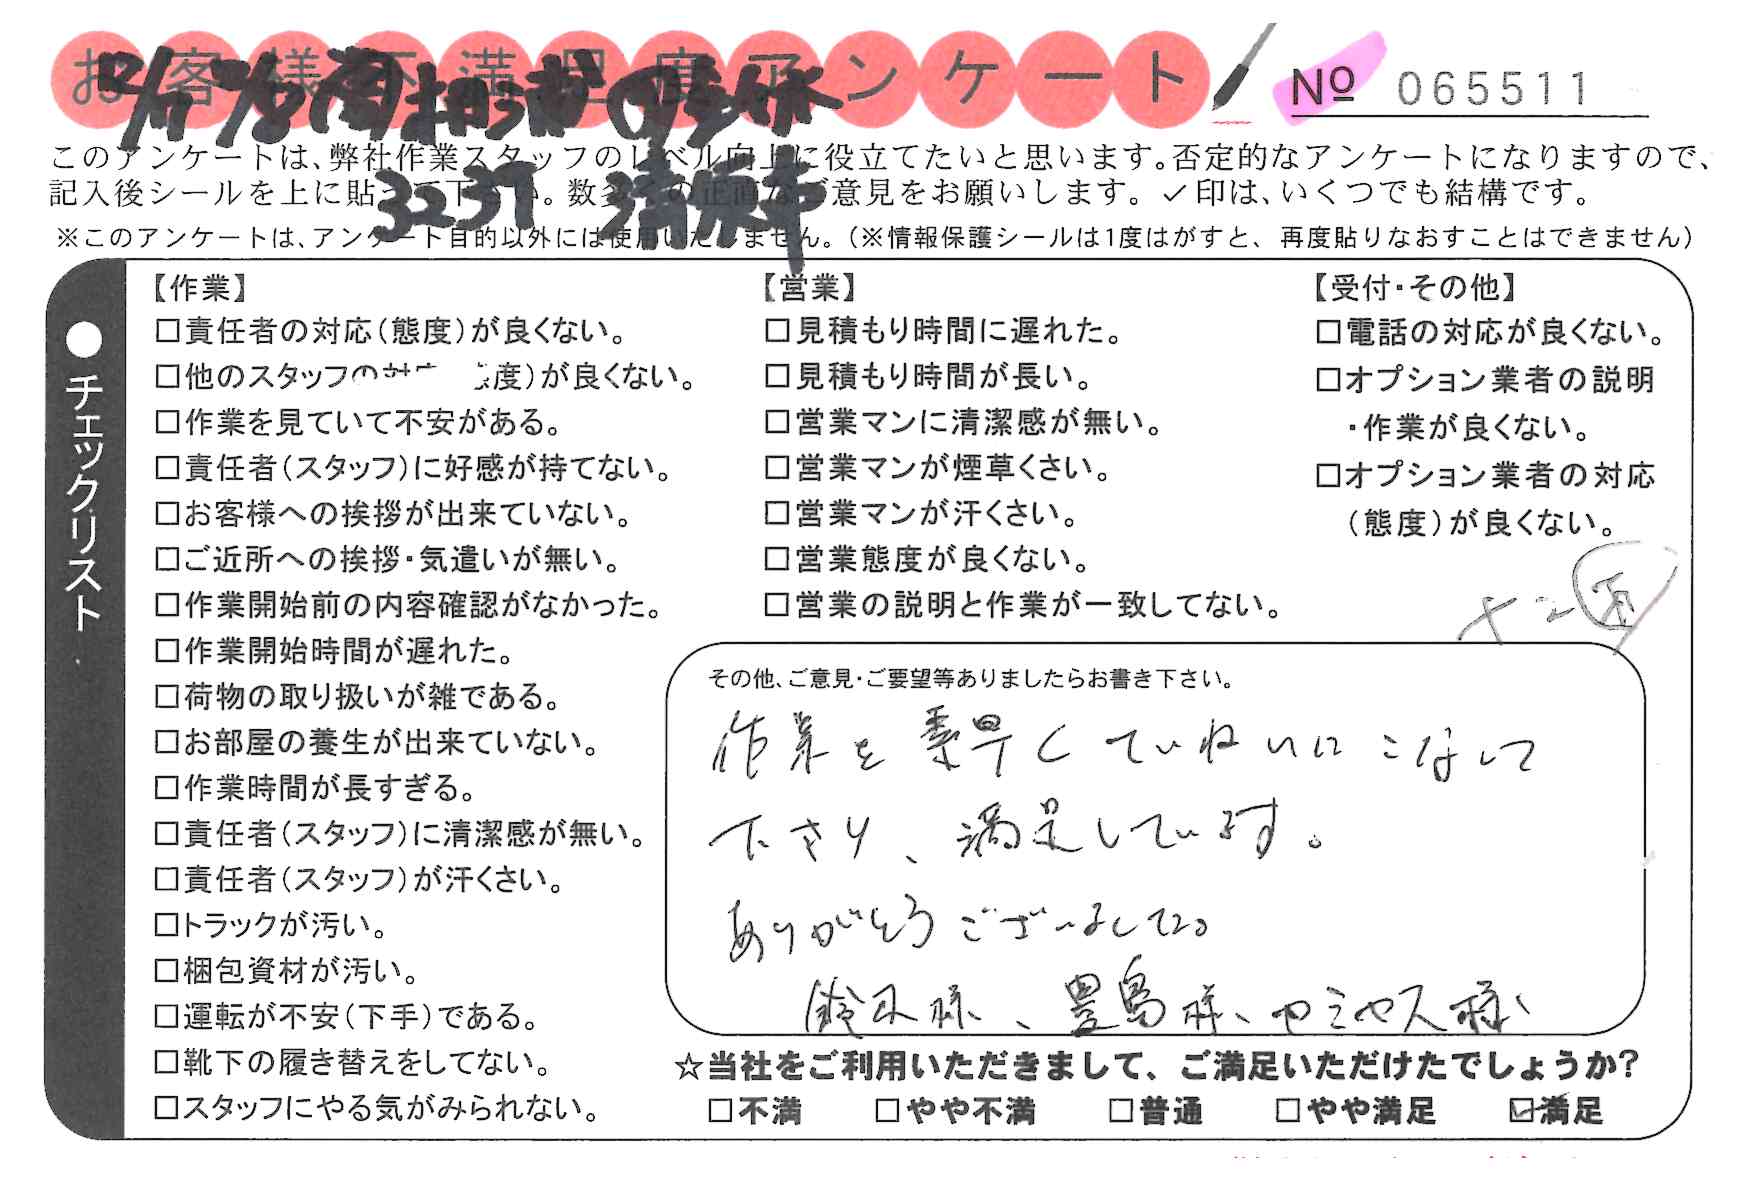 お客様不満足度アンケート
№ 065511
このアンケートは、弊社作業スタッフのレベル向上に役立てたいと思います。否定的なアンケートになりますので、
記入後シールを上に貼って下さい。数多くの正直なご意見をお願いします。✓印は、いくつでも結構です。
※このアンケートは、アンケート目的以外には使用いたしません。(※情報保護シールは1度はがすと、再度貼りなおすことはできません)
3237
●チェックリスト
【作業】
□責任者の対応(態度)が良くない。
□他のスタッフの対応 態度)が良くない。
□作業を見ていて不安がある。
□責任者(スタッフ)に好感が持てない。
□お客様への挨拶が出来ていない。
□ご近所への挨拶・気遣いが無い。
□作業開始前の内容確認がなかった。
□作業開始時間が遅れた。
□荷物の取り扱いが雑である。
□お部屋の養生が出来ていない。
□作業時間が長すぎる。
□責任者(スタッフ)に清潔感が無い。
□責任者(スタッフ)が汗くさい。
□トラックが汚い。
□梱包資材が汚い。
□運転が不安(下手)である。
□靴下の履き替えをしてない。
□スタッフにやる気がみられない。
【営業】
□見積もり時間に遅れた。
□見積もり時間が長い。
□営業マンに清潔感が無い。
□営業マンが煙草くさい。
□営業マンが汗くさい。
□営業態度が良くない。
□営業の説明と作業が一致してない。
【受付・その他】
□電話の対応が良くない。
□オプション業者の説明
・作業が良くない。
□オプション業者の対応
(態度)が良くない。
その他、ご意見・ご要望等ありましたらお書き下さい。
作業を素早くていねいにこなして
下さり、満足しています。
ありがとうございました。
鈴木様、豊島様、ヤミヤス様、
☆当社をご利用いただきまして、ご満足いただけたでしょうか?
□不満 □やや不満 □普通 □やや満足 ☑満足